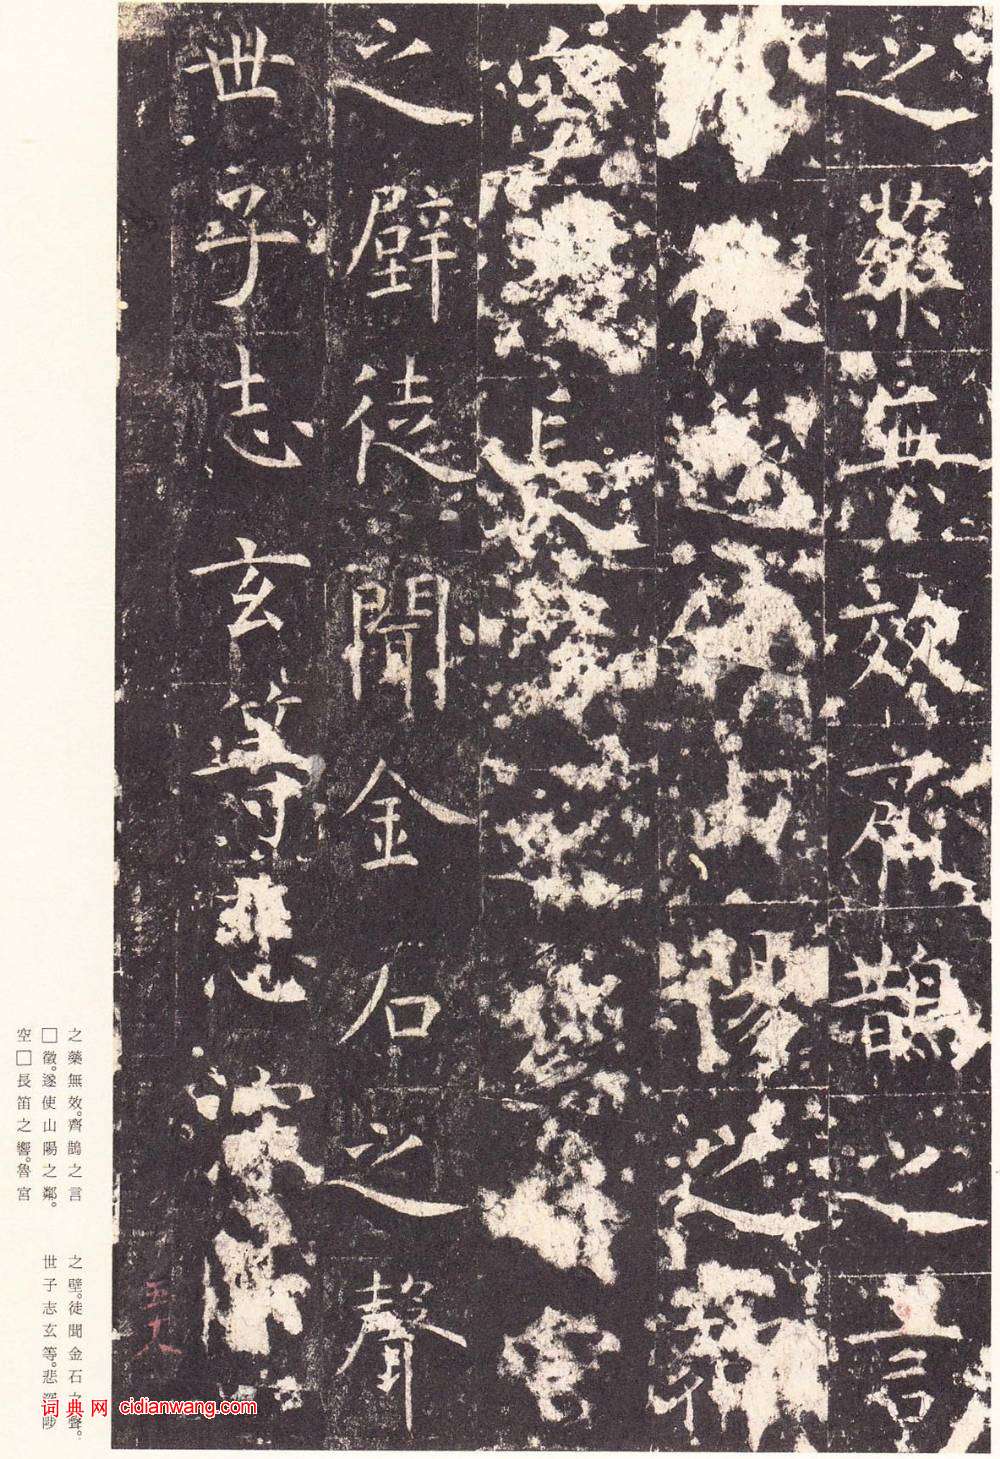 之藥無效齊鵲之言
遂使山陽之鄰
空長笛之響魯宮
之壁徒聞金石之聲
世子志玄等悲深陟
之藥無效。齊鵲之言
□徵。遂使山陽之鄰。
空□長笛之響。魯宮
之壁。徒聞金石之聲。
世子志玄等。悲深陟
词典网 cidianwang.com